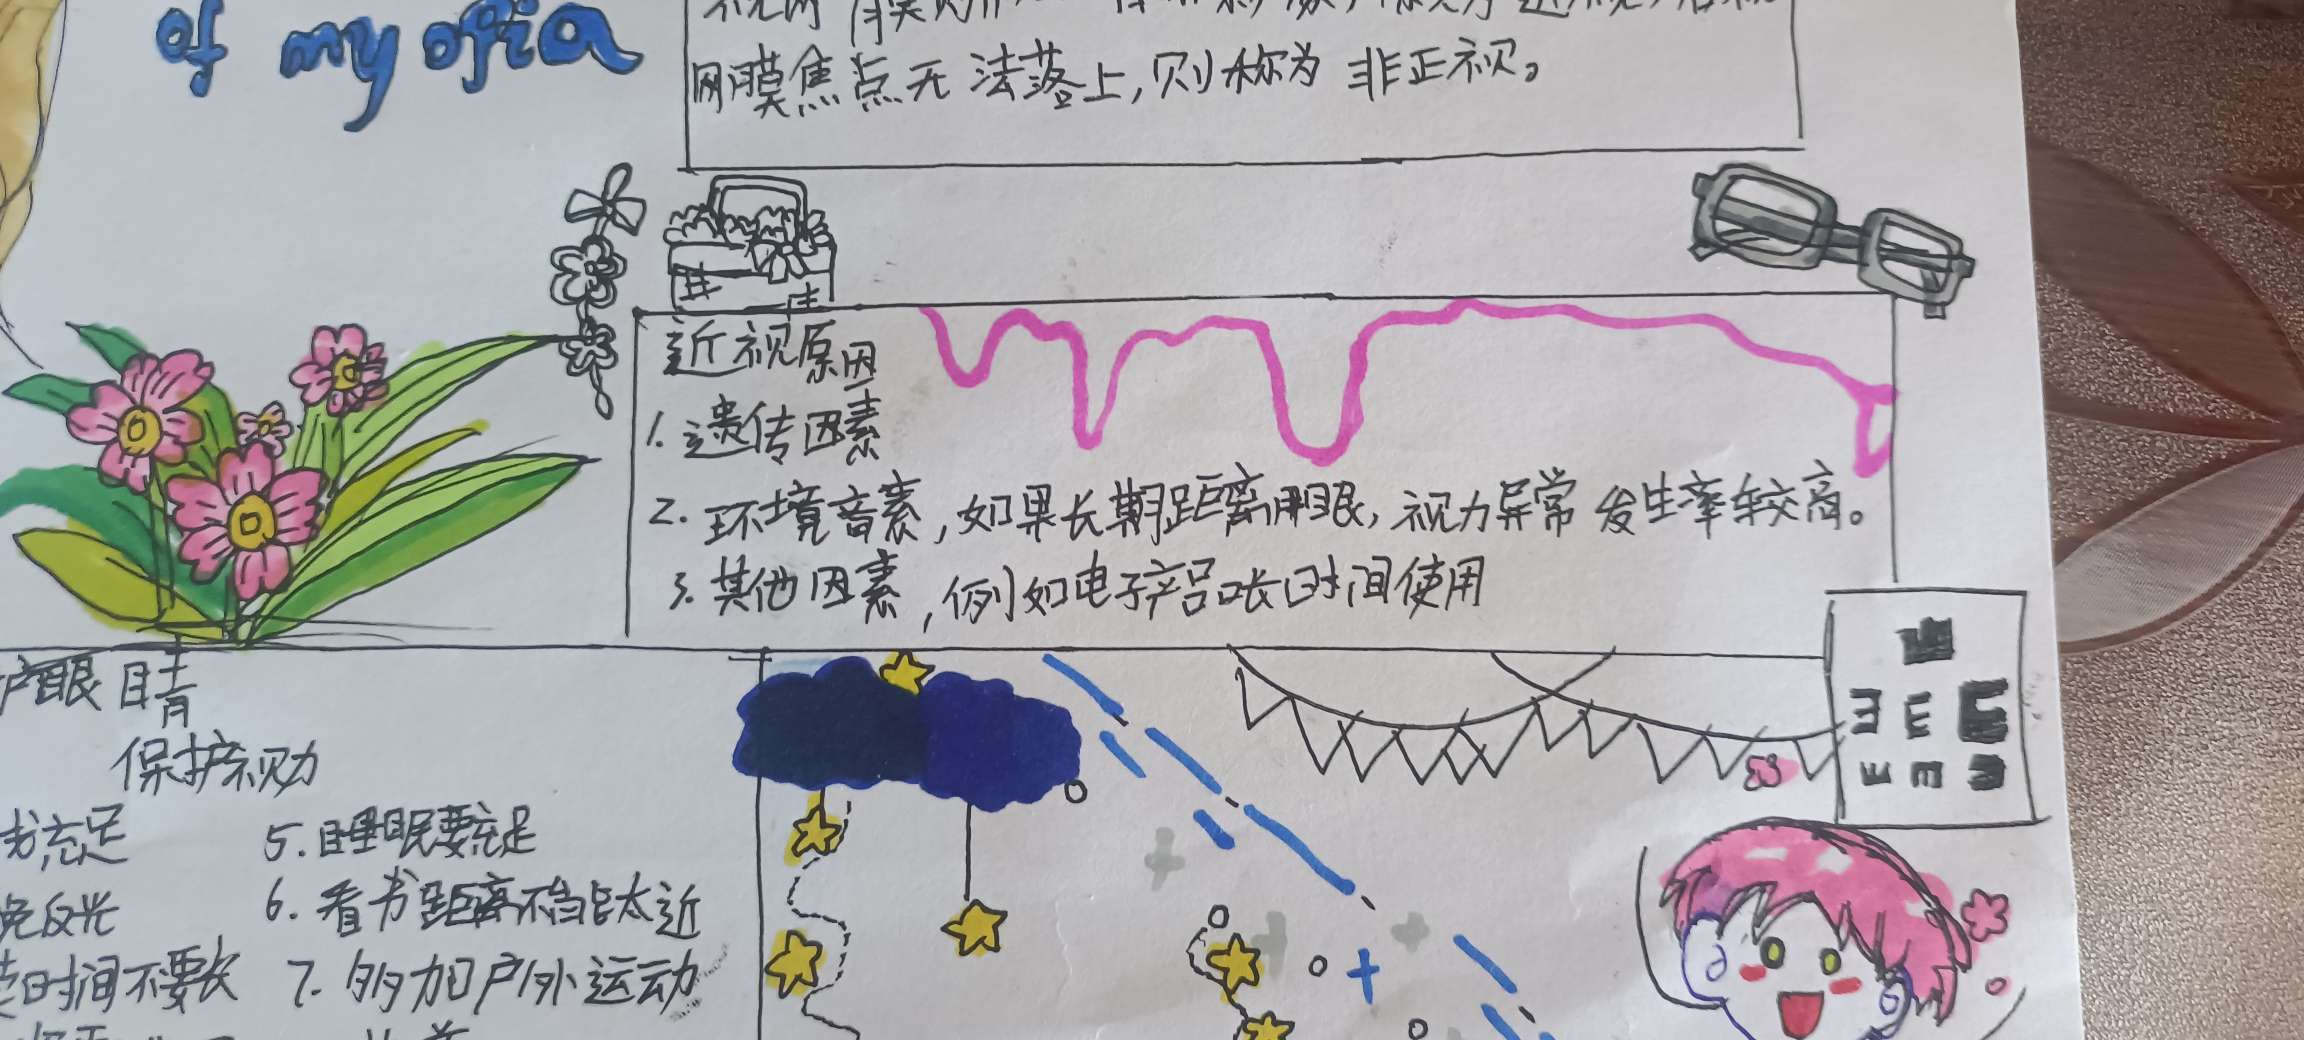 of myopia
网膜焦点无法落上,则称为非正视。
近视原因
1.遗传因素
2.环境音素,如果长期距离用眼,视力异常发生率较高。
3.其他因素,例如电子产品长时间使用
护眼睛
保护视力
充足
5.睡眠要充足
免反光
6.看书距离不能太近
时间不要长
7.多加户外运动